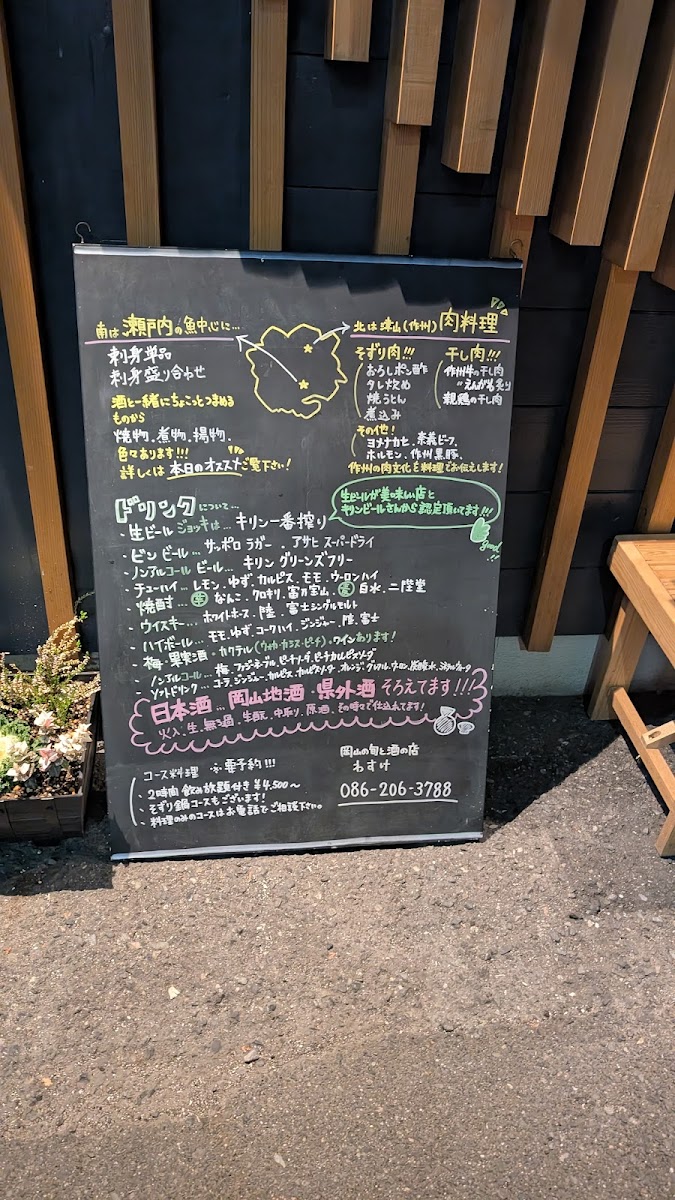 南は 瀬戸内の魚中心に…
刺身単品
刺身盛り合わせ
酒と一緒にちょこっとつまめる
ものから
焼物、煮物、揚物、
色々あります!!!
詳しくは本日のオススメご覧下さい!
北は津山(作州)肉料理
そずり肉!!!
おろしポン酢
タレ炒め
焼うどん
煮込み
干し肉!!!
作州牛の干し肉
親鶏の干し肉
その他!
ヨメナカセ、奈義ビーフ、
ホルモン、作州黒豚、
作州の肉文化を料理でお伝えします!
ドリンクについて…
生ビールが美味しい店と
キリンビールさんから認定頂いてます!!!
good!!
・生ビール ジョッキは… キリン一番搾り
・ビン ビール… サッポロ ラガー ・アサヒ スーパードライ
・ノンアルコール ビール… キリン グリーンズフリー
・チューハイ… レモン、ゆず、カルピス、モモ、ウーロンハイ
・焼酎… 芋 なんこ、クロキリ、富乃宝山、麦 自水、二階堂
・ウイスキー… ホワイトホース、陸、富士シングルモルト
・ハイボール… モモ、ゆず、コークハイ、ジンジャー、陸、富士
・梅・果実酒・カクテル(ウォッカ・カシス・ピーチ)・ワインあります!
・ノンアルコール… 梅・カシオレ
・ソフトドリンク… コーラ、ジンジャー、カルピス、カルピスソーダ、オレンジ
日本酒… 岡山地酒・県外酒 そろえてます!!!
火入、生、無濾過、生酛、中取り、原酒、その時々で仕込れてます!
コース料理 ※要予約!!!
・2時間飲み放題付き ¥4,500〜
・そずり鍋コースもございます!
・料理のみのコースはお電話でご相談下さい。
岡山の旬と酒の店
わすけ
086-206-3788